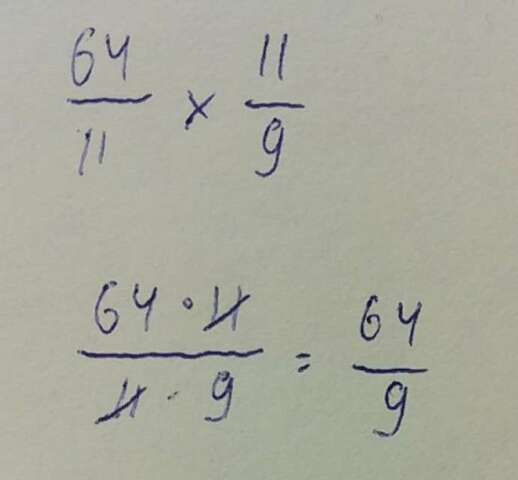 64/11 × 11/9
64 · 11 / 11 · 9 = 64/9